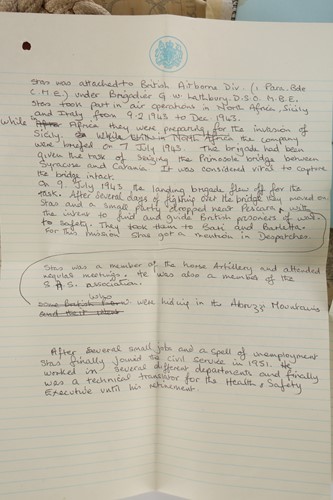 Stas was attached to British Airborne Div. (1 Para. Bde
C.M.E.) under Brigadier G W Lathbury. D.S.O. M.B.E.
Stas took part in air operations in North Africa, Sicily
and Italy from 9.2 1943 to Dec 1943.
While Africa they were preparing for the invasion of
Sicily. While in North Africa the company
were briefed on 7 July 1943. The brigade had been
given the task of seizing the Primosole bridge between
Syracuse and Catania. It was considered vital to capture
the bridge intact.
On 9 July 1943 the landing brigade flew off for the
task. After several days of fighting over the bridge they moved on
Stas and a small party dropped near Pescara with
the intent to find and guide British prisoners of war
to safety. They took them to Bari and Barletta.
For this mission Stas got a mention in Despatches.
Stas was a member of the horse Artillery and attended
regular meetings. He was also a member of the
S.A.S. association.
who
some British were hiding in the Abruzzi Mountains
and their
After several small jobs and a spell of unemployment
Stas finally joined the Civil Service in 1951. He
worked in several different departments and finally
was a technical translator for the Health & Safety
Executive until his retirement.